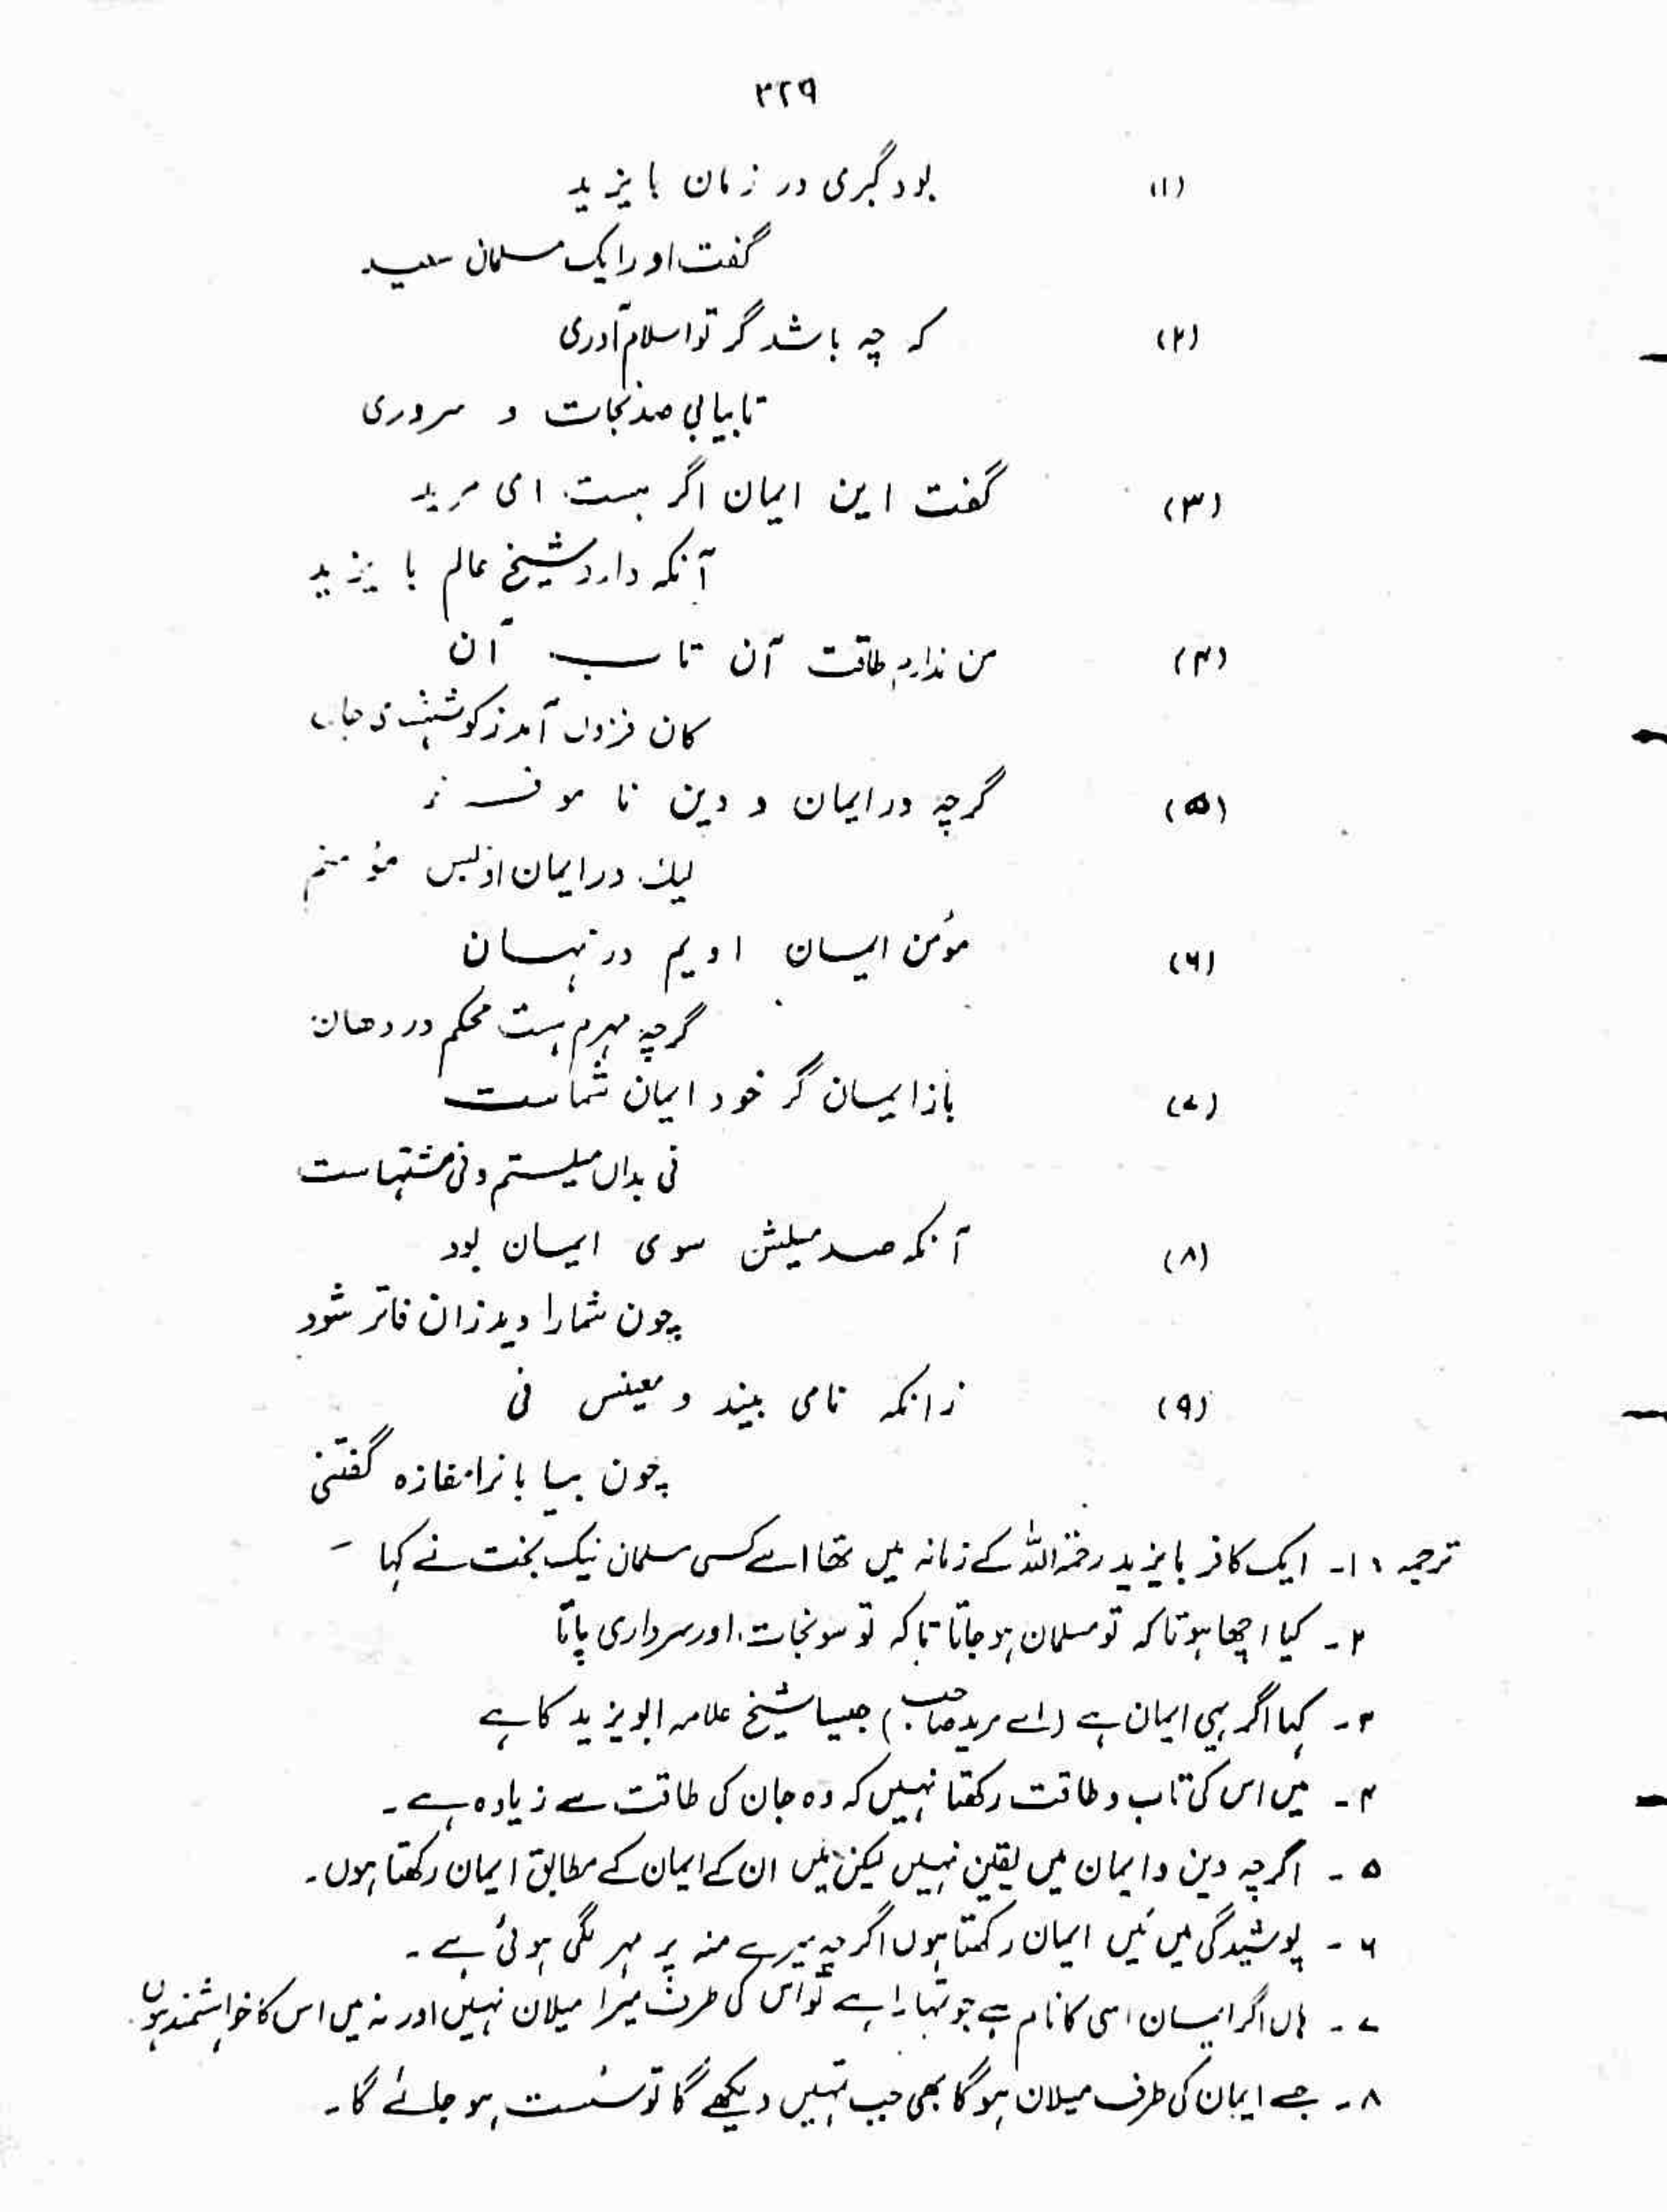 ٣٢٩
(١) بود گبری در زمان بایزید
گفت او را یک مسلمان سعید
(٢) کہ چہ باشد گر تو اسلام آوری
تا بیابی صد نجات و سروری
(٣) گفت این ایمان اگر ہست ای مرید
آنکہ دارد شیخ عالم بایزید
(۴) من ندارم طاقت آن تاب آن
کان فزوں آمد ز کوششہای جاں
(۵) گرچہ در ایمان و دین نا موقنم
لیک در ایمان او بس مؤمنم
(۶) مؤمن ایمان اویم در نہان
گرچہ مہرم ہست محکم در دھان
(۷) باز ایمان گر خود ایمان شماست
نی بداں میلستم و نی مشتہاست
(۸) آنکہ صد میلش سوی ایمان بود
چون شما را دید زان فاتر شود
(۹) زانکہ نامی بیند و معینس نی
چون بیابانرا مفازہ گفتنی
ترجمہ :١۔ ایک کافر بایزید رحمۃ اللہ کے زمانہ میں تھا اسے کسی مسلمان نیک بخت نے کہا ۔
٢۔ کیا اچھا ہوتا کہ تو مسلمان ہو جاتا تاکہ تو سو نجات، اور سرداری پاتا
٣۔ کہا اگر یہی ایمان ہے (اے مرید صاحب) جیسا شیخ علامہ ابویزید کا ہے
۴۔ میں اس کی تاب و طاقت رکھتا نہیں کہ وہ جان کی طاقت سے زیادہ ہے۔
۵۔ اگرچہ دین و ایمان میں یقین نہیں لیکن میں ان کے ایمان کے مطابق ایمان رکھتا ہوں۔
۶۔ پوشیدگی میں میں ایمان رکھتا ہوں اگرچہ میرے منہ پر مہر لگی ہوئی ہے۔
۷۔ ہاں اگر ایمان اسی کا نام ہے جو تمہارا ہے تو اس کی طرف میرا میلان نہیں اور نہ میں اس کا خواہشمند ہوں۔
۸۔ جسے ایمان کی طرف میلان ہو گا بھی جب تمہیں دیکھے گا تو سُست ہو جائے گا۔